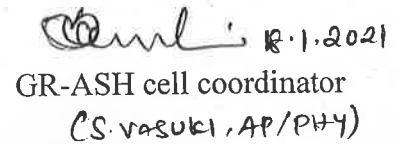 18.1.2021
GR-ASH cell coordinator
(S. VASUKI, AP/PHY)